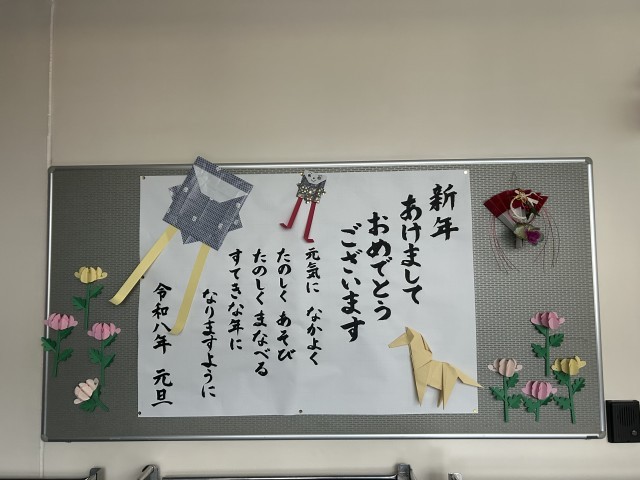 新年
あけまして
おめでとう
ございます
元気に なかよく
たのしく あそび
たのしく まなべる
すてきな年に
なりますように
令和八年 元旦